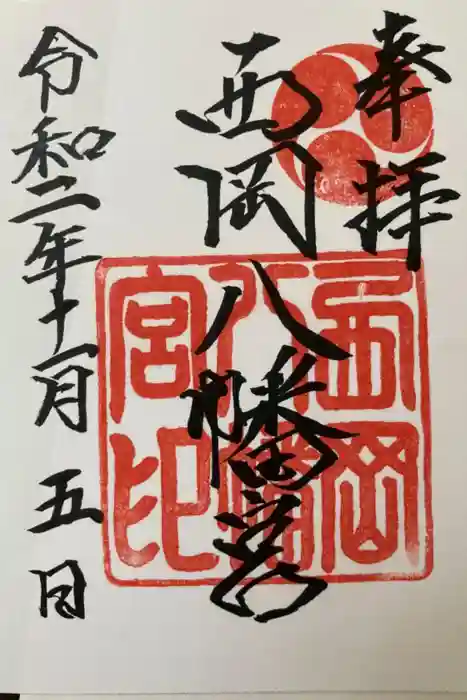 奉拝
西岡八幡宮
西岡八幡宮印
令和二年十一月五日